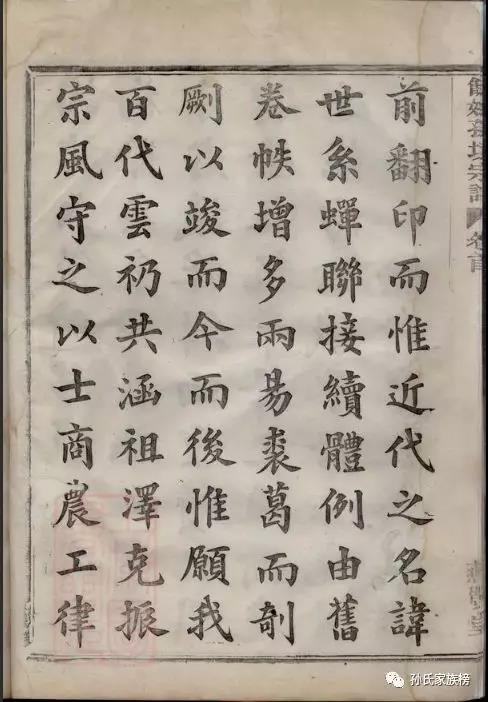 前翻印而惟近代之名諱
世系蟬聯接續體例由舊
卷帙增多兩易裘葛而剞
劂以竣而今而後惟願我
百代雲礽共涵祖澤克振
宗風守之以士商農工律
孙氏家族榜